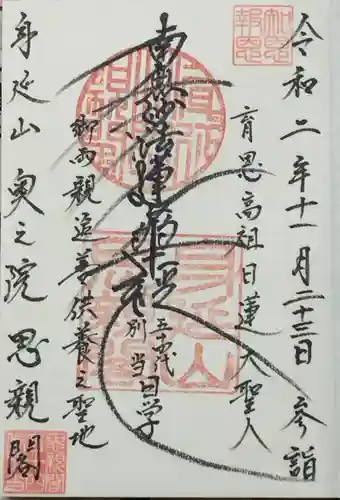 令和二年十一月二十三日 参詣
知恩報恩
育恩高祖日蓮大聖人
南無妙法蓮華経
別当
五十代
日学
御両親追善供養之聖地
身延山奥之院思親閣
身延山